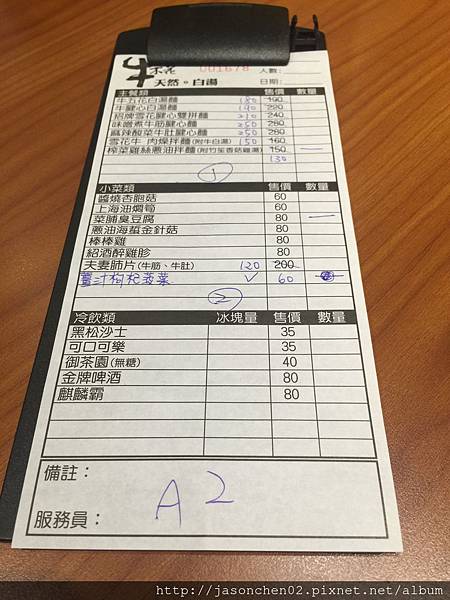 牛 001678 人數：
天然。白湯 日期：
主餐類 售價 數量
牛五花白湯麵 180 190
牛腱心白湯麵 190 220
招牌雪花腱心雙拼麵 210 240
味噌煮牛筋麵 250 280
麻辣酸菜牛肚腱心麵 250 280
雪花牛 肉燥拌麵(附牛白湯) 150 160
榨菜雞絲蔥油拌麵(附竹笙香菇雞湯) 150 一
130
①
小菜類 售價 數量
醬燒杏胞菇 60
上海油燜筍 60
菜脯臭豆腐 80 一
蔥油海蜇金針菇 80
棒棒雞 80
紹酒醉雞胗 80
夫妻肺片(牛筋、牛肚) 120 200
薑汁枸杞菠菜 ✓ 60
②
冷飲類 冰塊量 售價 數量
黑松沙士 35
可口可樂 35
御茶園(無糖) 40
金牌啤酒 80
麒麟霸 80
備註：
A2
服務員：
http://jasonchen02.pixnet.net/album